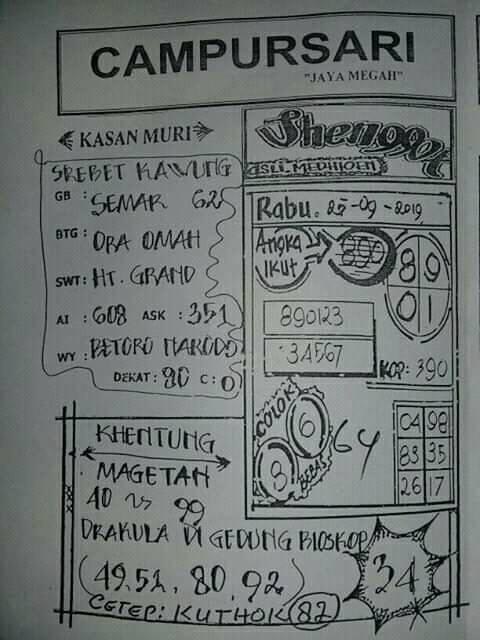 CAMPURSARI
"JAYA MEGAH"
KASAN MURI
SREBET KAWUNG
GB : SEMAR 62
BTG : ORA OMAH
SWT : HT. GRAND
AI : 608 ASK : 351
WY : BETORO NARODO
DEKAT : 80 C : 0
Shenggot
ASLI MEDHIOEN
Rabu. 25-09-2019
Angka IKUT
890
89
01
890123
34567
KOP: 390
COLOK
6
8
BEBAS
64
04 98
83 35
26 17
KHENTUNG
MAGETAN
40 vs 99
DRAKULA DI GEDUNG BIOSKOP
(49.51. 80. 92)
34
CETEP: KUTHOK 82